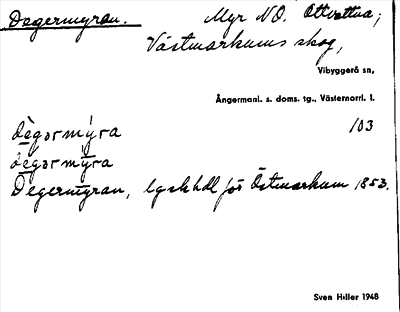 Degermyran. Myr NO. Ottvattna;
Västmarkums skog,
Vibyggerå sn,
Ångermanl. s. doms. tg., Västernorrl. l.
dè̱gərmy̆ra 103
dè̱gərmȳra
Degermyran, lgskhdl för Östmarkum 1853.
Sven Hiller 1948